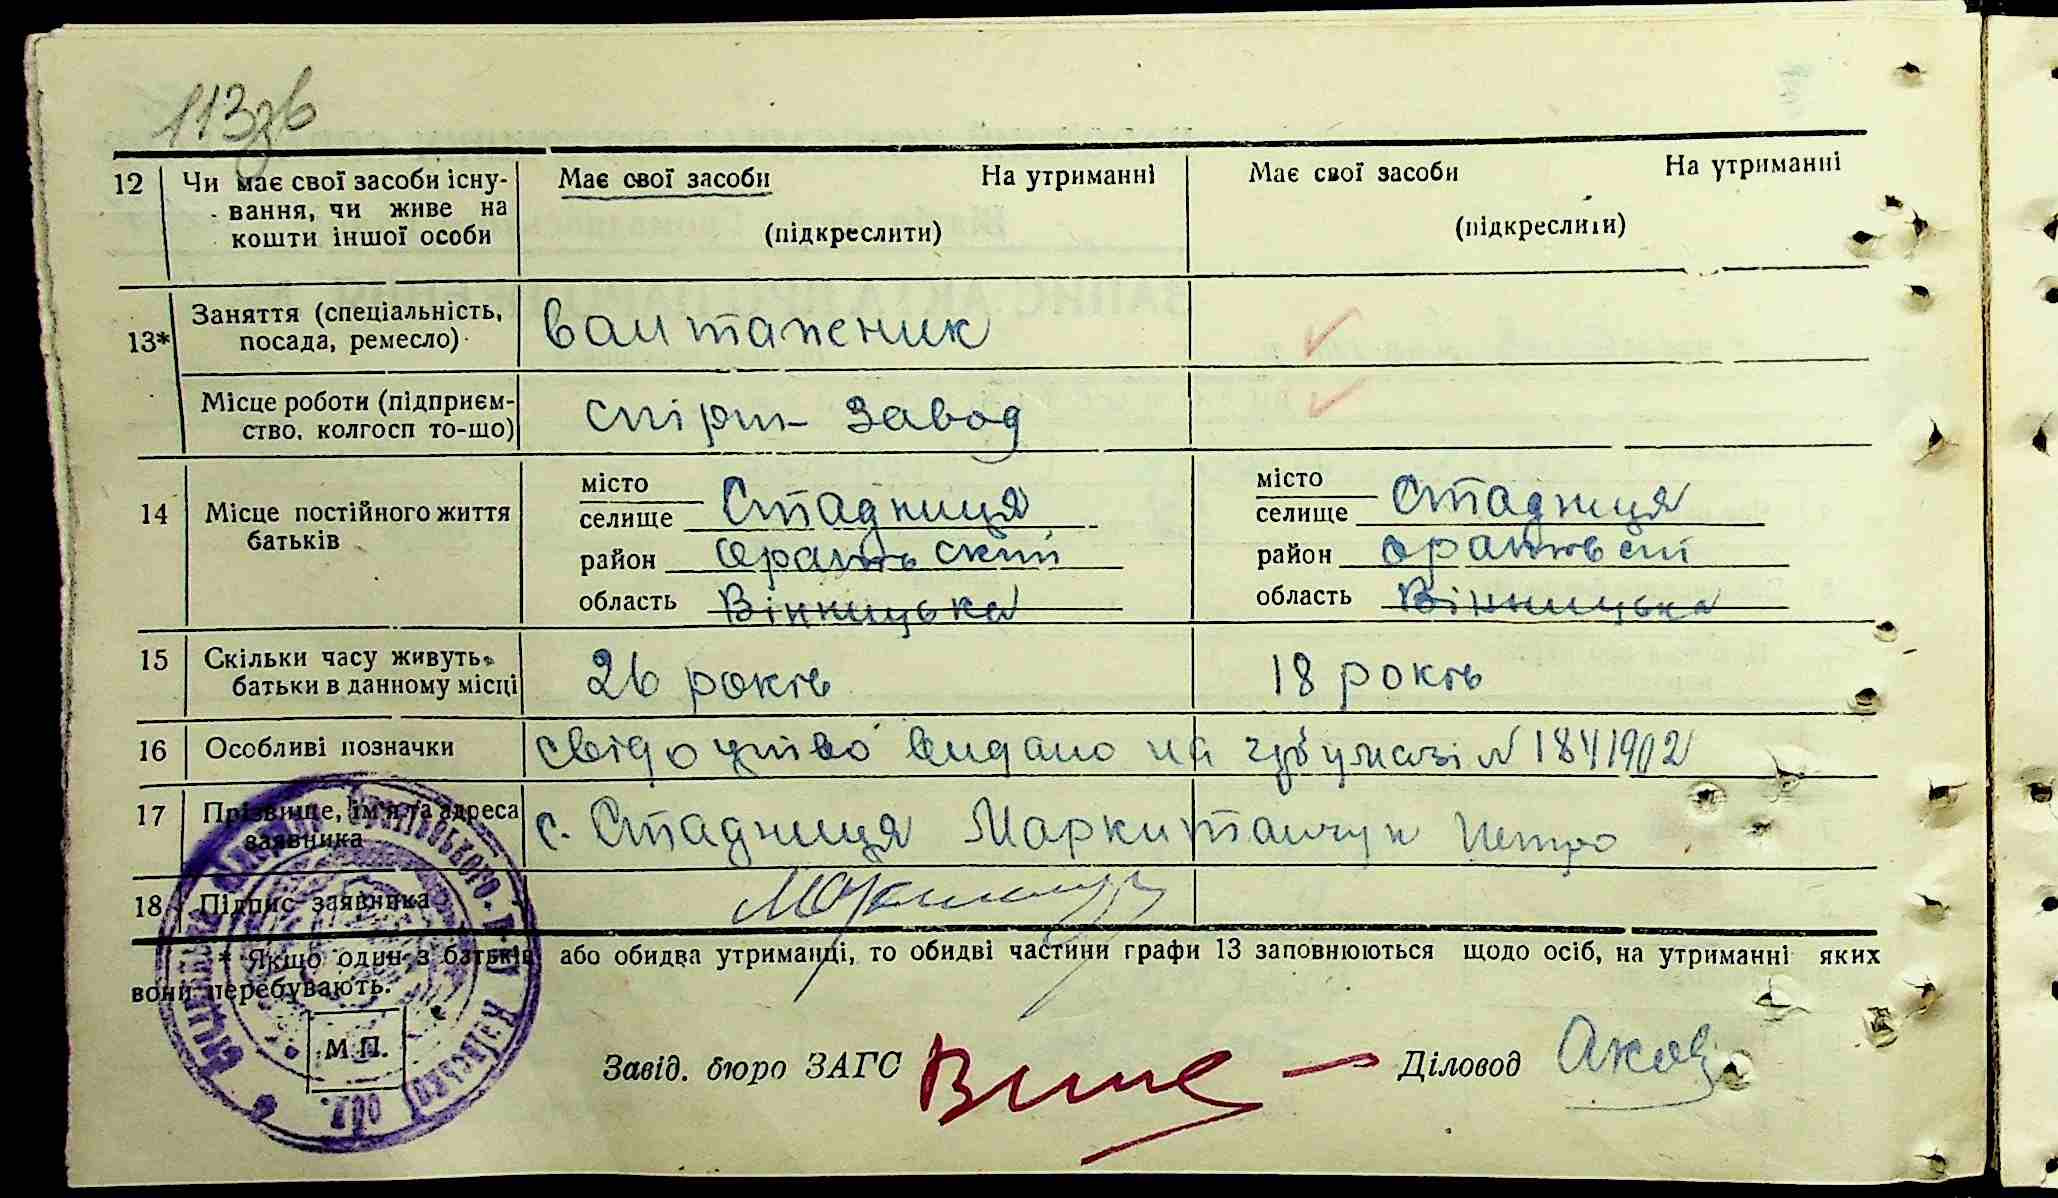 113зв
12 Чи має свої засоби існу- Має свої засоби На утриманні Має свої засоби На утриманні
вання, чи живе на
кошти іншої особи (підкреслити) (підкреслити)
13* Заняття (спеціальність, посада, ремесло) вантажник
Місце роботи (підприєм- спірт завод
ство, колгосп то-що)
14 Місце постійного життя батьків
місто місто
селище Стадниця селище Стадниця
район оратівский район оратівскі
область Вінницька область Вінницька
15 Скільки часу живуть 26 років 18 років
батьки в данному місці
16 Особливі позначки свідоцтво видано на гербумазі № 1841902
17 Прізвище, ім'я та адреса заявника с. Стадниця Маркитанчук Петро
18 Підпис заявника
* Якщо один з батьків або обидва утриманці, то обидві частини графи 13 заповнюються щодо осіб, на утриманні яких
вони перебувають.
М.П.
Завід. бюро ЗАГС Діловод
Київської обл.